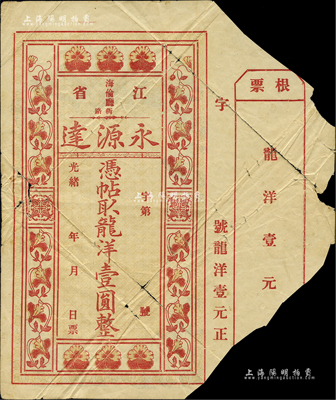 上海陽明拍賣
江省
海倫廳
永源達
字第 號
憑帖取龍洋壹圓整
光緒 年 月 日票
字 號龍洋壹元正
票根
龍洋壹元
上海陽明拍賣
www.yangmingauction.com